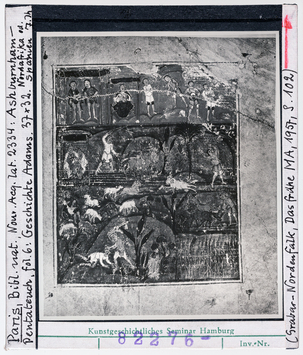 Paris, Bibl. nat. Nouv. Acq. lat. 2334 : Ashburnham-
Pentateuch, fol. 6: Geschichte Adams. 37x32. Nordafrika od.
Spanien 7. Jh
Kunstgeschichtliches Seminar Hamburg
82276-
Inv.-Nr.
(Grabar-Nordenfalk, Das frühe MA, 1957, S. 102)